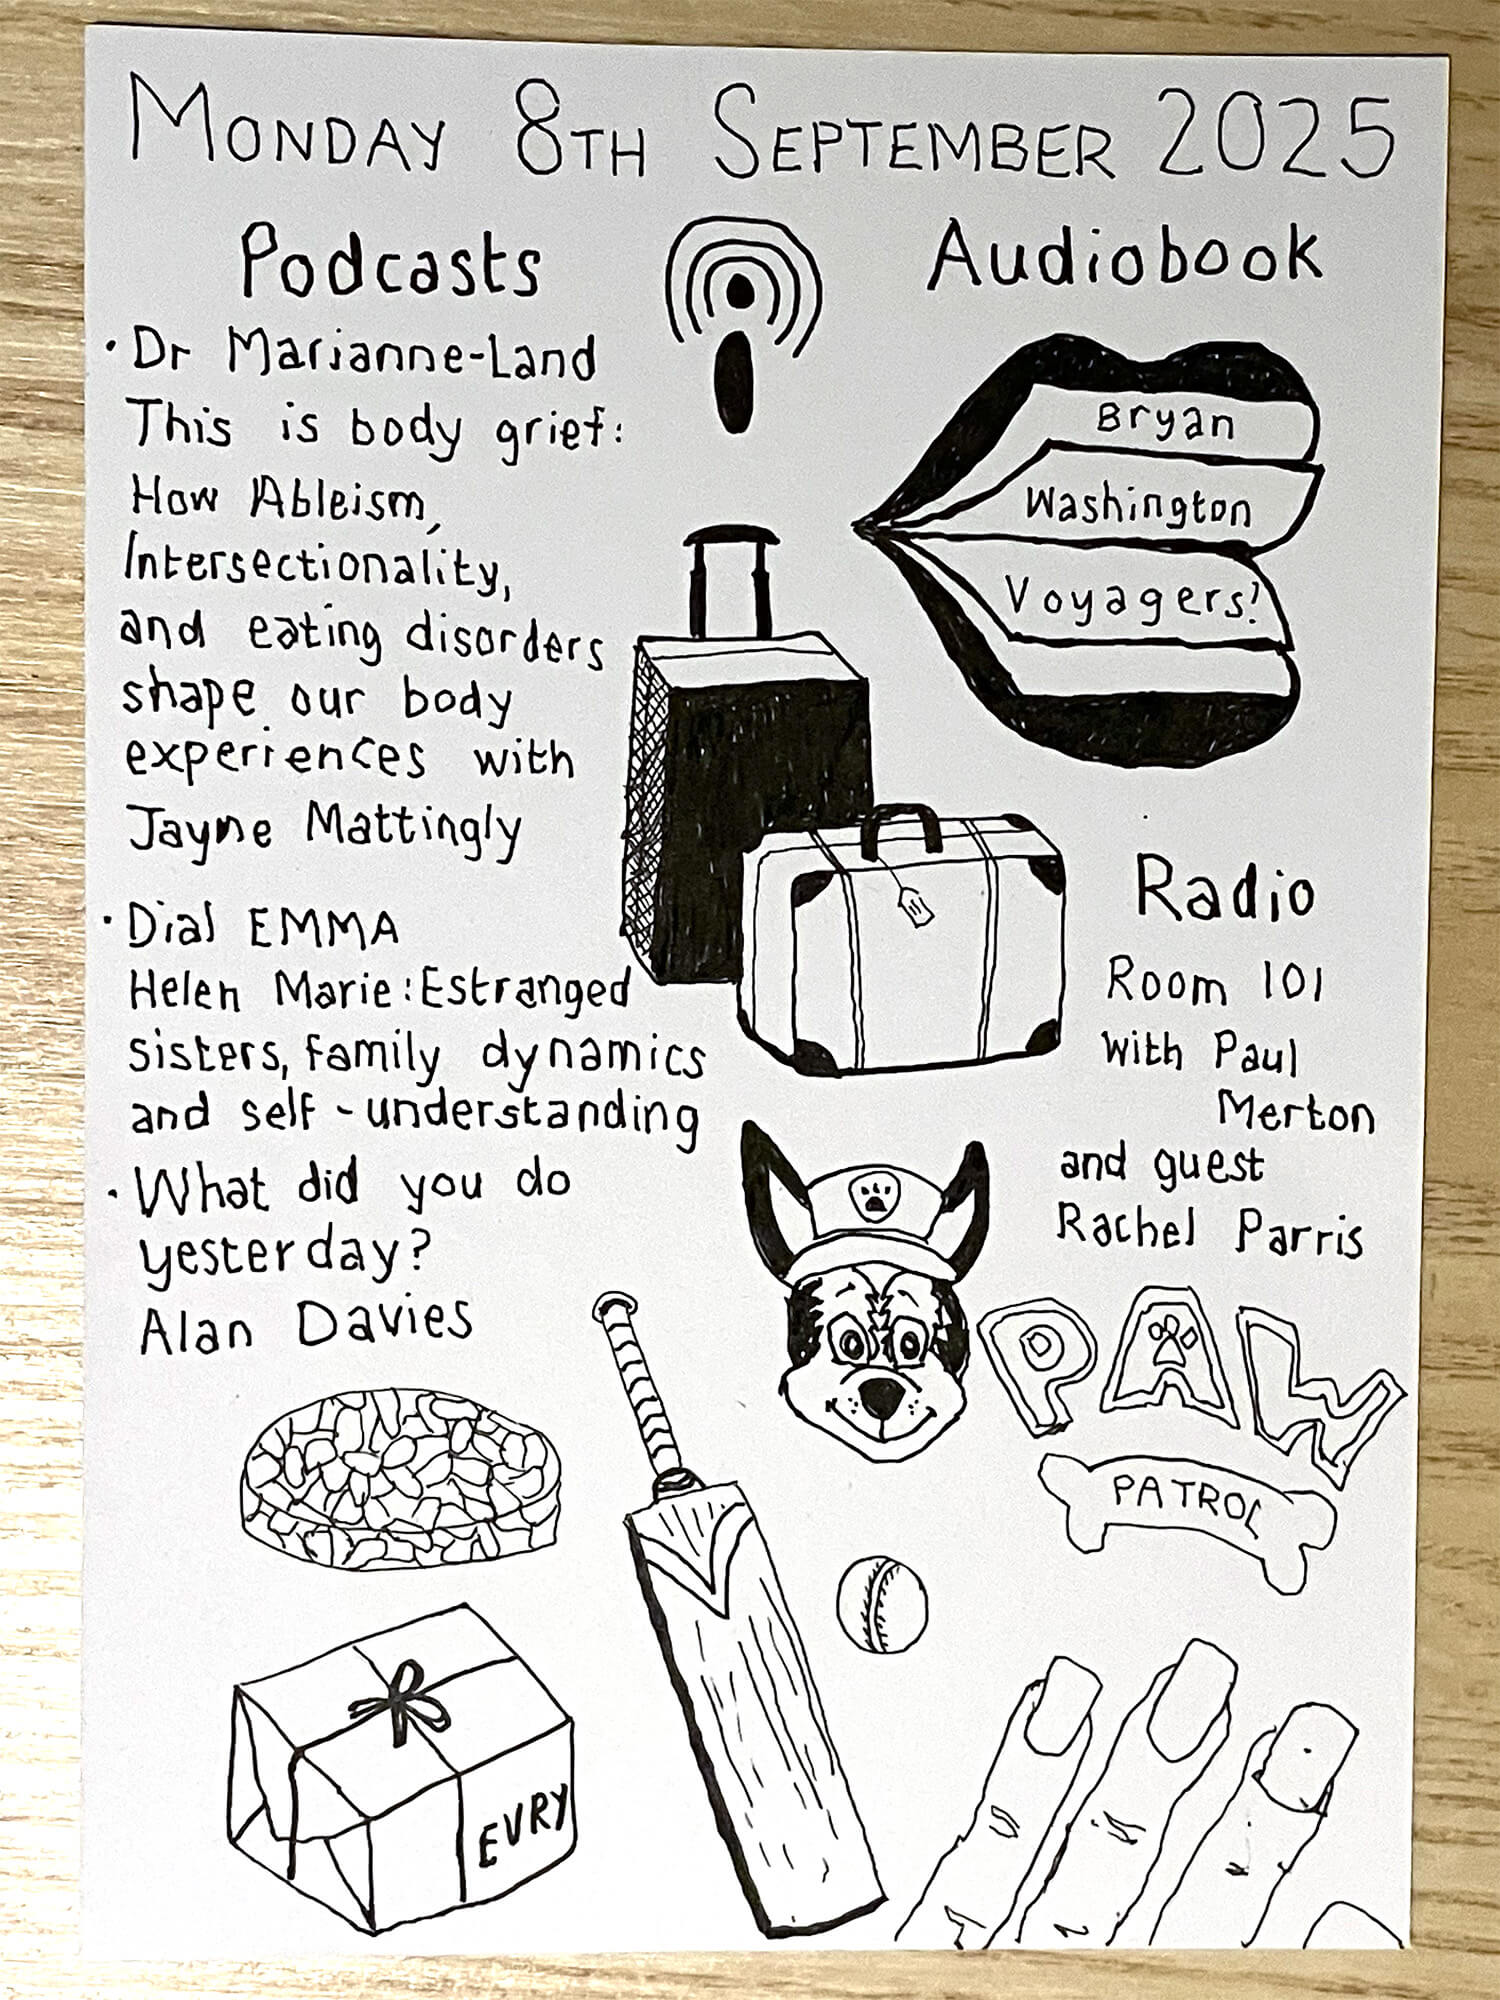 MONDAY 8TH SEPTEMBER 2025
Podcasts
• Dr Marianne-Land
This is body grief:
How Ableism,
Intersectionality,
and eating disorders
shape our body
experiences with
Jayne Mattingly
• Dial EMMA
Helen Marie: Estranged
sisters, family dynamics
and self-understanding
• What did you do
yesterday?
Alan Davies
Audiobook
Bryan
Washington
Voyagers!
Radio
Room 101
with Paul
Merton
and guest
Rachel Parris
PAW
PATROL
EVRY